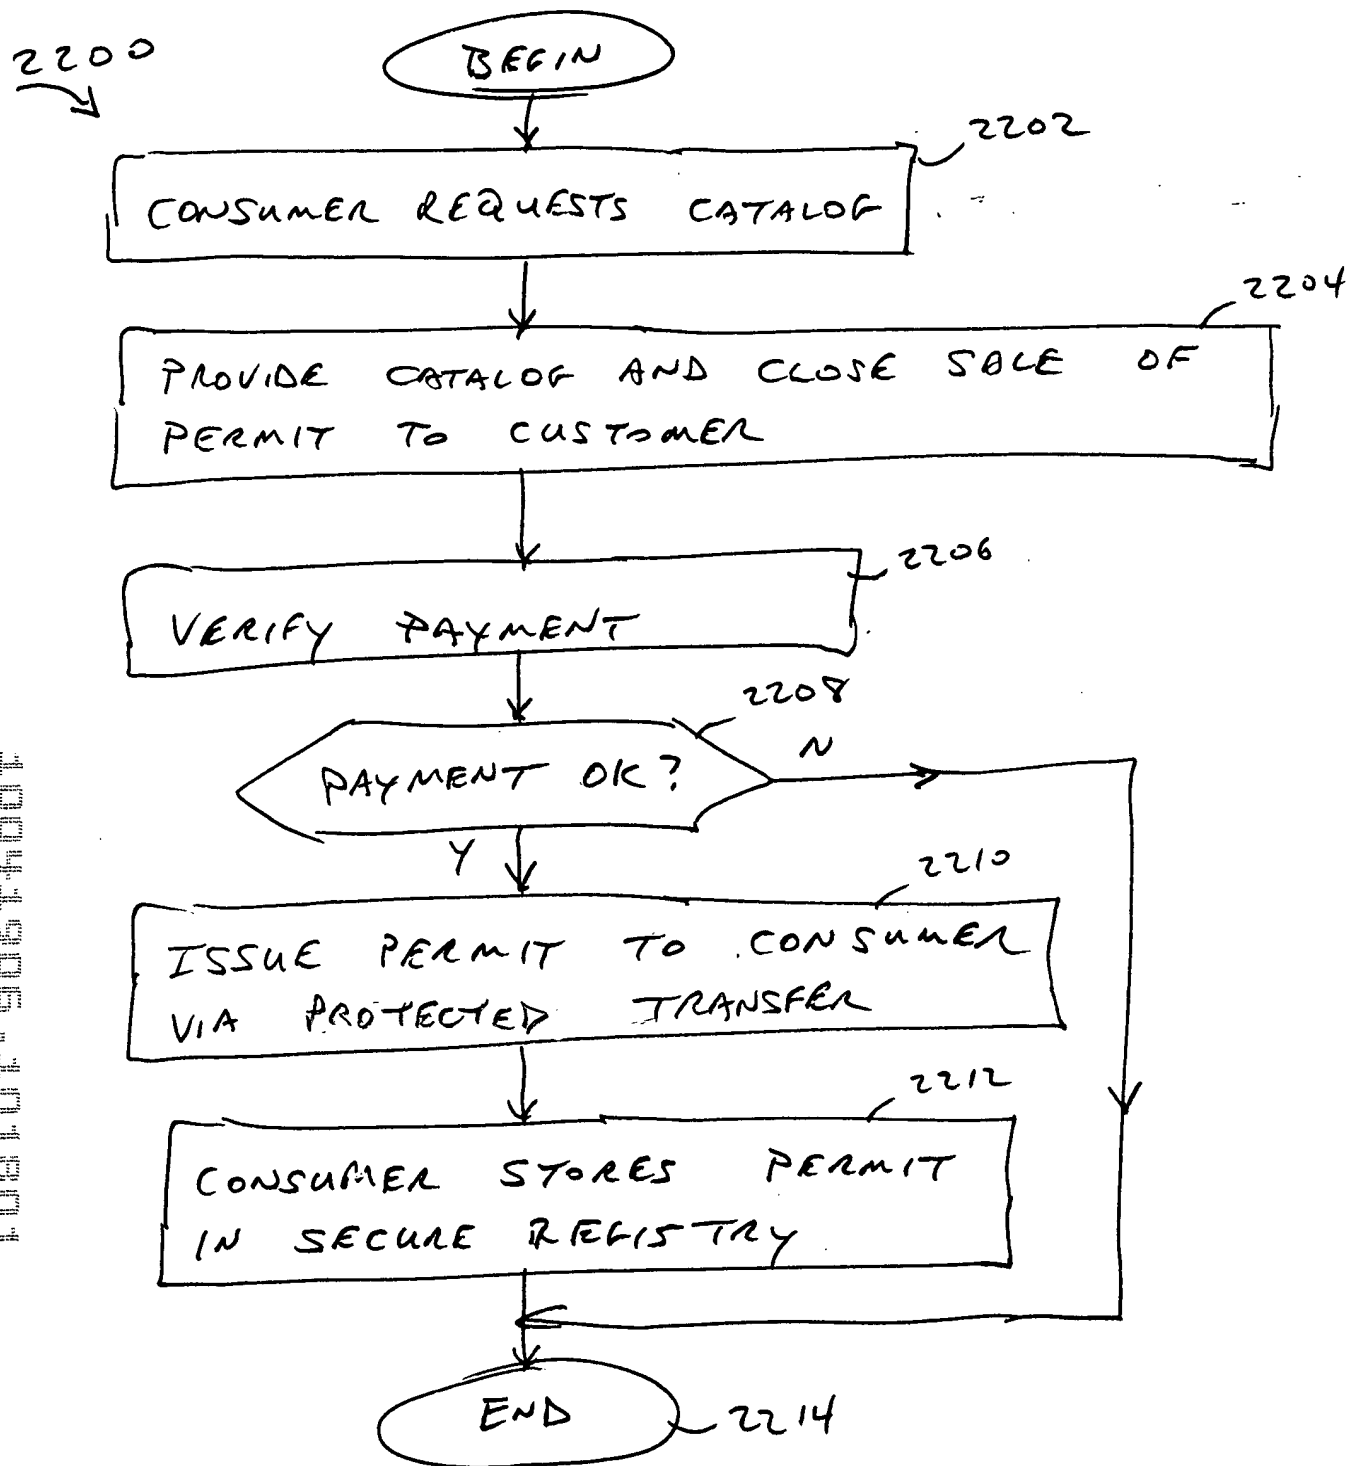 2200
BEGIN
2202
CONSUMER REQUESTS CATALOG
2204
PROVIDE CATALOG AND CLOSE SALE OF
PERMIT TO CUSTOMER
2206
VERIFY PAYMENT
2208
PAYMENT OK?
N
Y
2210
ISSUE PERMIT TO CONSUMER
VIA PROTECTED TRANSFER
2212
CONSUMER STORES PERMIT
IN SECURE REGISTRY
END
2214